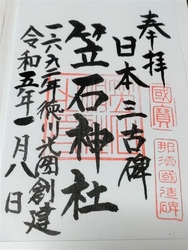 奉拝
國寶
那須國造碑
日本三古碑
笠石神社
一六九一年徳川光圀創建
令和五年一月八日